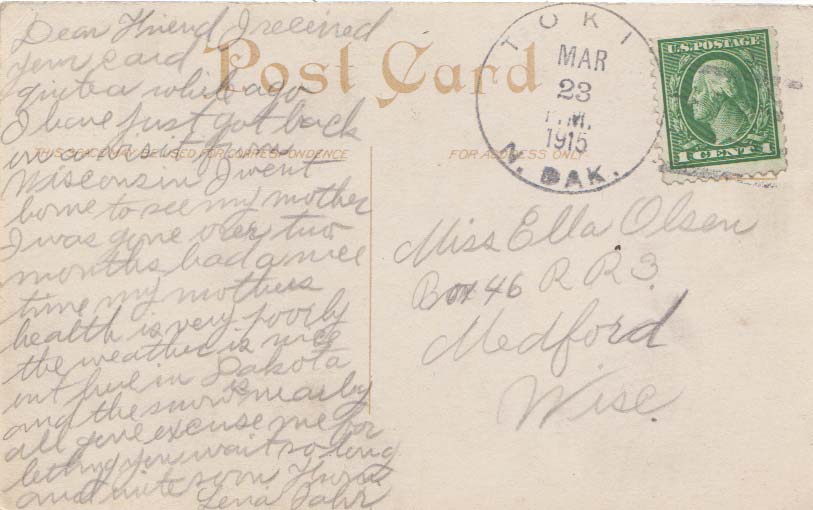 Dear Friend I received
your card
quite a while ago
I have just got back
on a visit from
Wisconsin I went
home to see my mother
I was gone over two
months had a nice
time my mothers
health is very poorly
the weather is nice
in Dakota
and the snow is nearly
all gone excuse me for
letting you wait so long
and write soon
Lena
Post Card
THIS SPACE MAY BE USED FOR CORRESPONDENCE
FOR ADDRESS ONLY
TOKI
MAR
23
P.M.
1915
N. DAK.
U.S. POSTAGE
1 CENT 1
Miss Ella Olsen
Box 46 R R 3
Medford
Wisc.